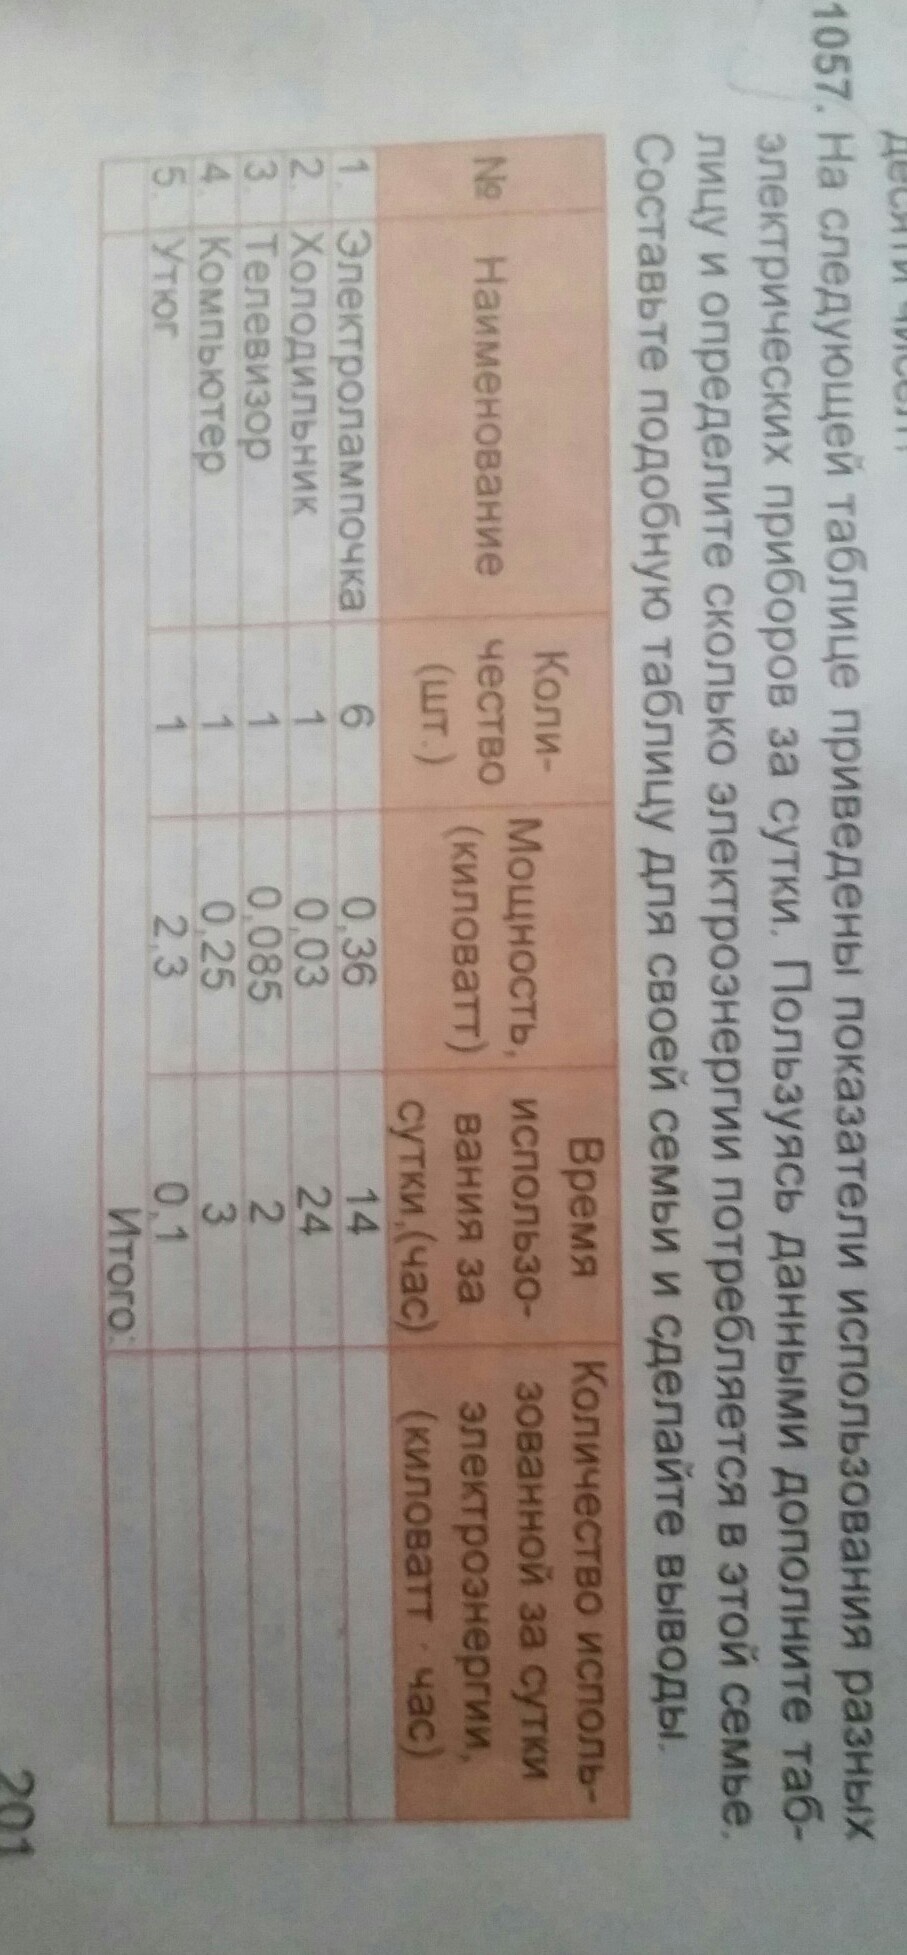 десяти чисел.
1057. На следующей таблице приведены показатели использования разных
электрических приборов за сутки. Пользуясь данными дополните таб-
лицу и определите сколько электроэнергии потребляется в этой семье.
Составьте подобную таблицу для своей семьи и сделайте выводы.
№ Наименование Коли-чество (шт.) Мощность, (киловатт) Время использо-вания за сутки,(час) Количество исполь-зованной за сутки электроэнергии, (киловатт · час)
1. Электролампочка 6 0,36 14
2. Холодильник 1 0,03 24
3. Телевизор 1 0,085 2
4. Компьютер 1 0,25 3
5. Утюг 1 2,3 0,1
Итого:
201